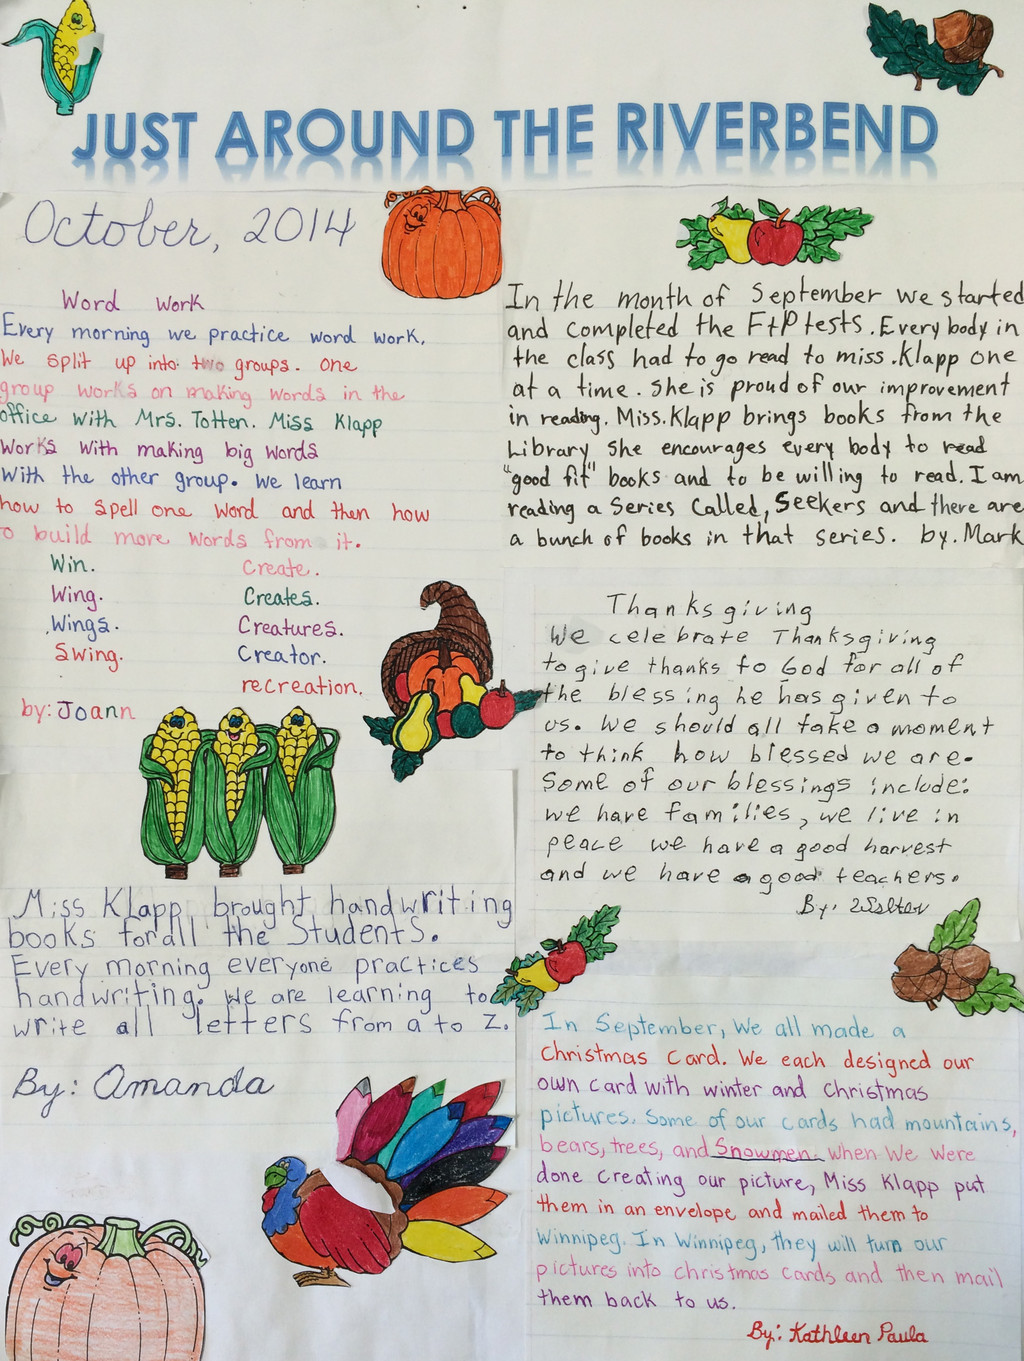 JUST AROUND THE RIVERBEND
October, 2014
Word work
Every morning we practice word work.
We split up into two groups. One
group works on making words in the
office with Mrs. Totten. Miss Klapp
works with making big words
with the other group. We learn
how to spell one word and then how
to build more words from it.
Win. Create.
Wing. Creates.
Wings. Creatures.
Swing. Creator.
recreation.
by: Joann
Miss Klapp brought handwriting
books for all the Students.
Every morning everyone practices
handwriting. We are learning to
write all letters from a to z.
By: Amanda
In the month of September we started
and completed the FtP tests. Every body in
the class had to go read to miss. Klapp one
at a time. She is proud of our improvement
in reading. Miss. Klapp brings books from the
Library she encourages every body to read
"good fit" books and to be willing to read. I am
reading a Series Called, Seekers and there are
a bunch of books in that series. by. Mark
Thanksgiving
We celebrate Thanksgiving
to give thanks to God for all of
the blessing he has given to
us. We should all take a moment
to think how blessed we are.
Some of our blessings include:
we have families, we live in
peace we have a good harvest
and we have a good teachers.
By. Walter
In September, We all made a
Christmas Card. We each designed our
own card with winter and christmas
pictures. Some of our cards had mountains,
bears, trees, and Snowmen. When We were
done creating our picture, Miss Klapp put
them in an envelope and mailed them to
Winnipeg. In Winnipeg, they will turn our
pictures into christmas cards and then mail
them back to us.
By: Kathleen Paula